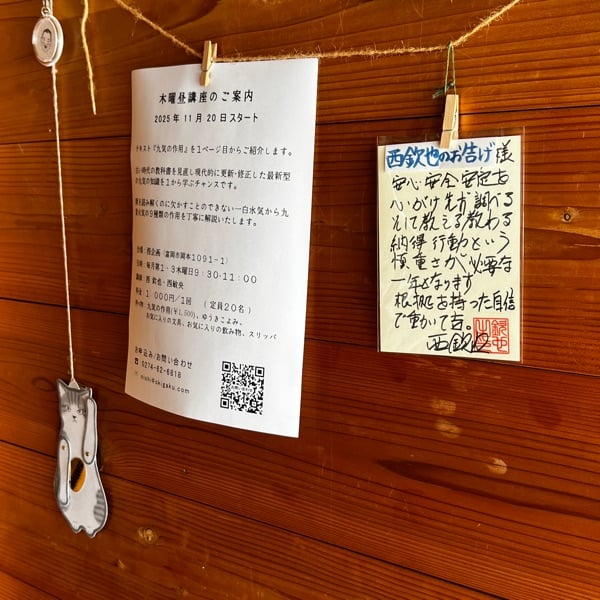 木曜昼講座のご案内
2025年11月20日スタート
テキスト『九気の作用』を1ページ目からご紹介します。
古い時代の教科書を見直し現代的に更新・修正した最新型
の九気の知識を1から学ぶチャンスです。
暦を読み解くのに欠かすことのできない一白水気から九
紫火気の9種類の作用を丁寧に解説いたします。
会場:西企画(富岡市岡本1091-1)
日時:毎月第1・3木曜日9:30-11:00
講師:西 欽也・西敏央
料金:1,000円/1回 (定員20名)
持ち物:九気の作用(¥1,500)、ゆうきごよみ、
お気に入りの文具、お気に入りの飲み物、スリッパ
お申込み/お問い合わせ
0274-62-6818
nishi@chigaku.com
西欽也のお告げ 様
安心・安全・安定を
心がけ 先ず調べる
そして教える教わる
納得 行動という
慎重さが必要な
一年となります
根拠を持った自信
で動かて吉。
西欽也